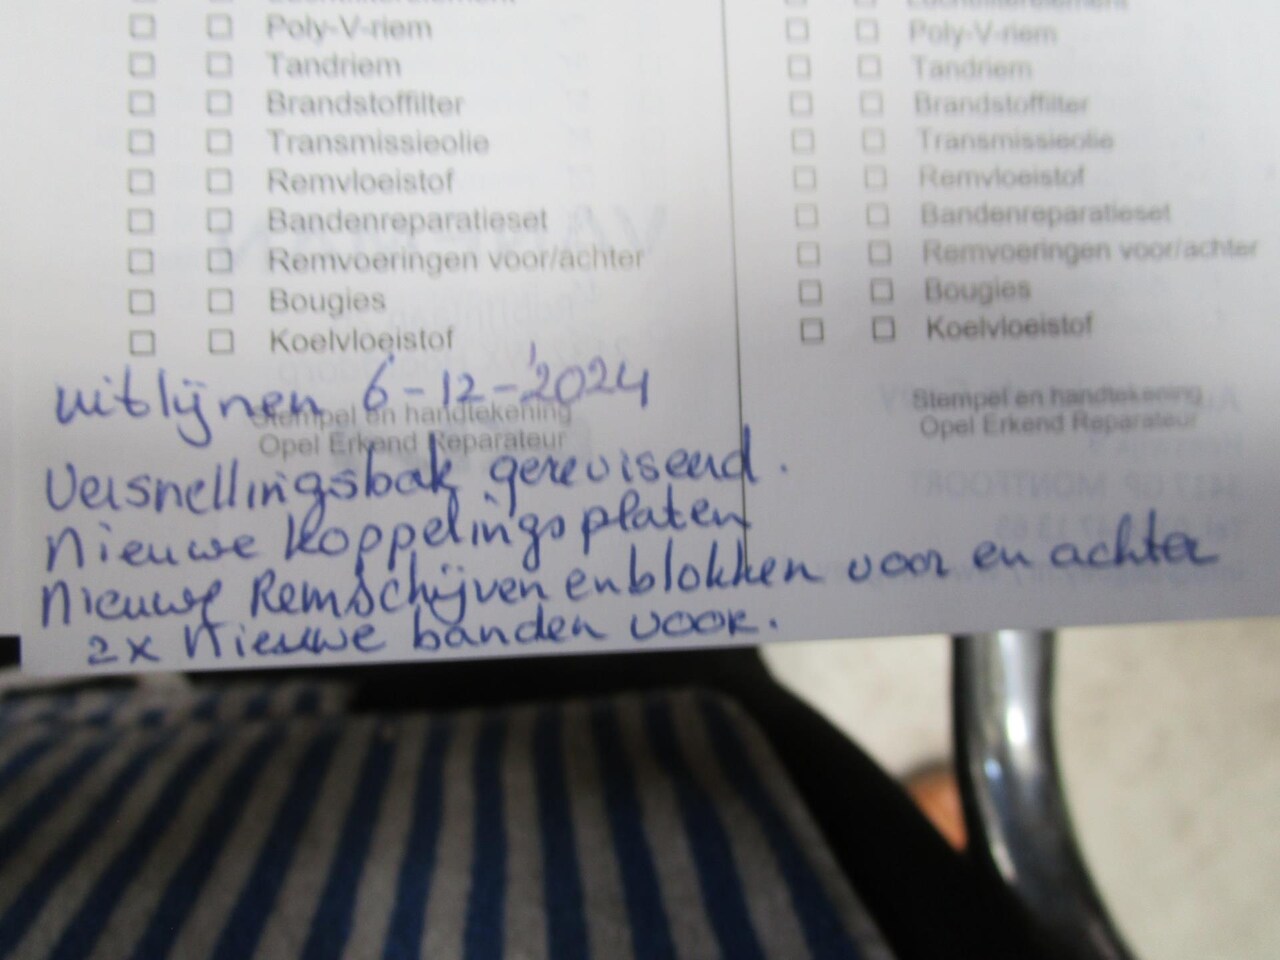 Poly-V-riem
Tandriem
Brandstoffilter
Transmissieolie
Remvloeistof
Bandenreparatieset
Remvoeringen voor/achter
Bougies
Koelvloeistof
uitlijnen 6-12-2024
Stempel en handtekening
Opel Erkend Reparateur
Versnellingsbak gereviseerd.
Nieuwe koppelingsplaten
Nieuwe Remschijven en blokken voor en achter
2x Nieuwe banden voor.
Poly-V-riem
Tandriem
Brandstoffilter
Transmissieolie
Remvloeistof
Bandenreparatieset
Remvoeringen voor/achter
Bougies
Koelvloeistof
Stempel en handtekening
Opel Erkend Reparateur